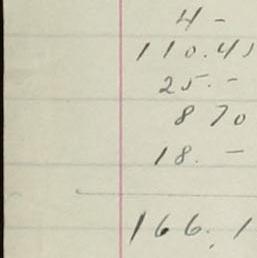 4 -
110.45
25. -
8 70
18. -
166. 1